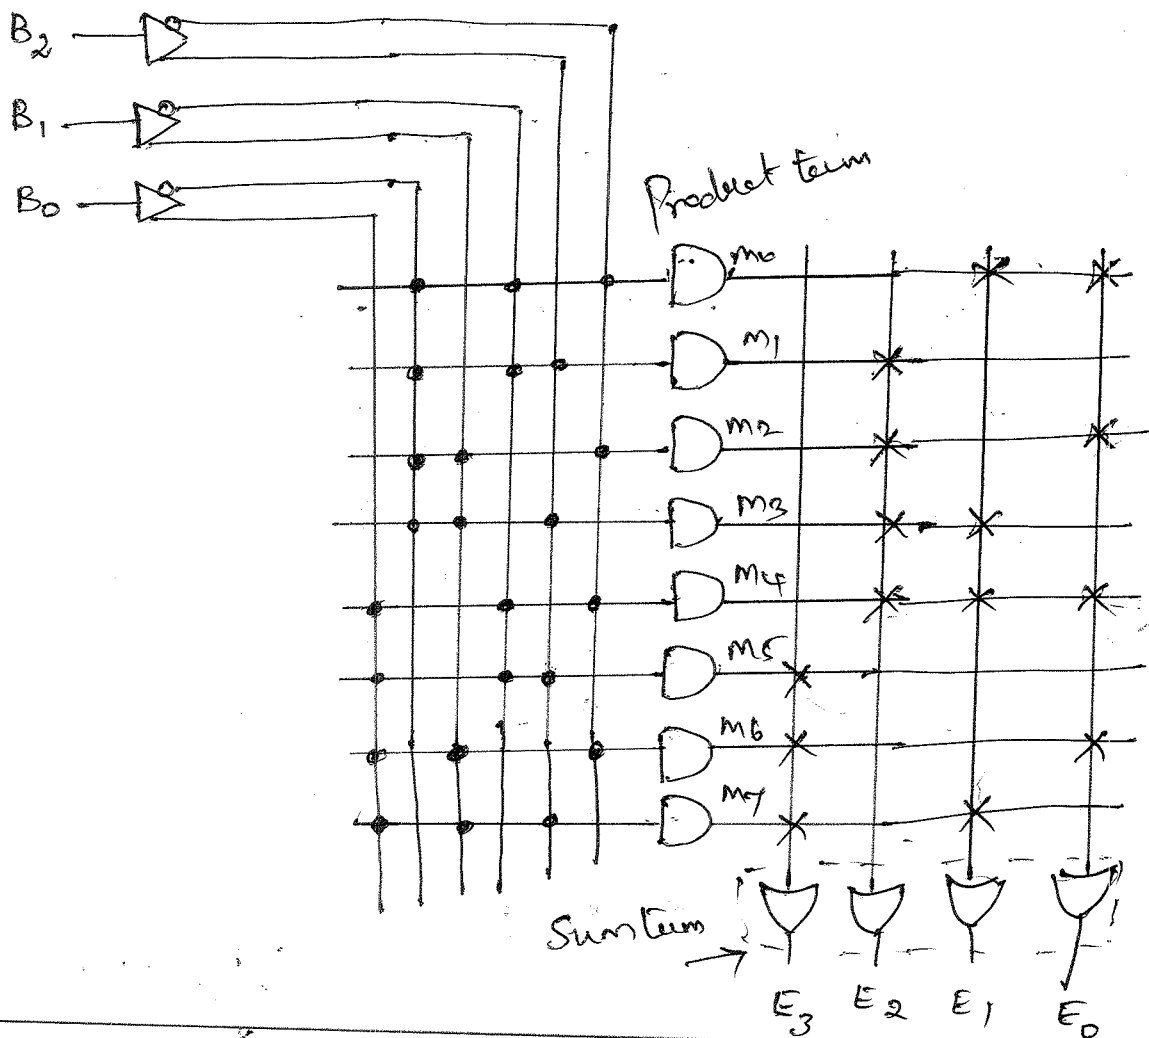 B2
B1
B0
Product term
m0
m1
m2
m3
m4
m5
m6
m7
Sum term
E3
E2
E1
E0